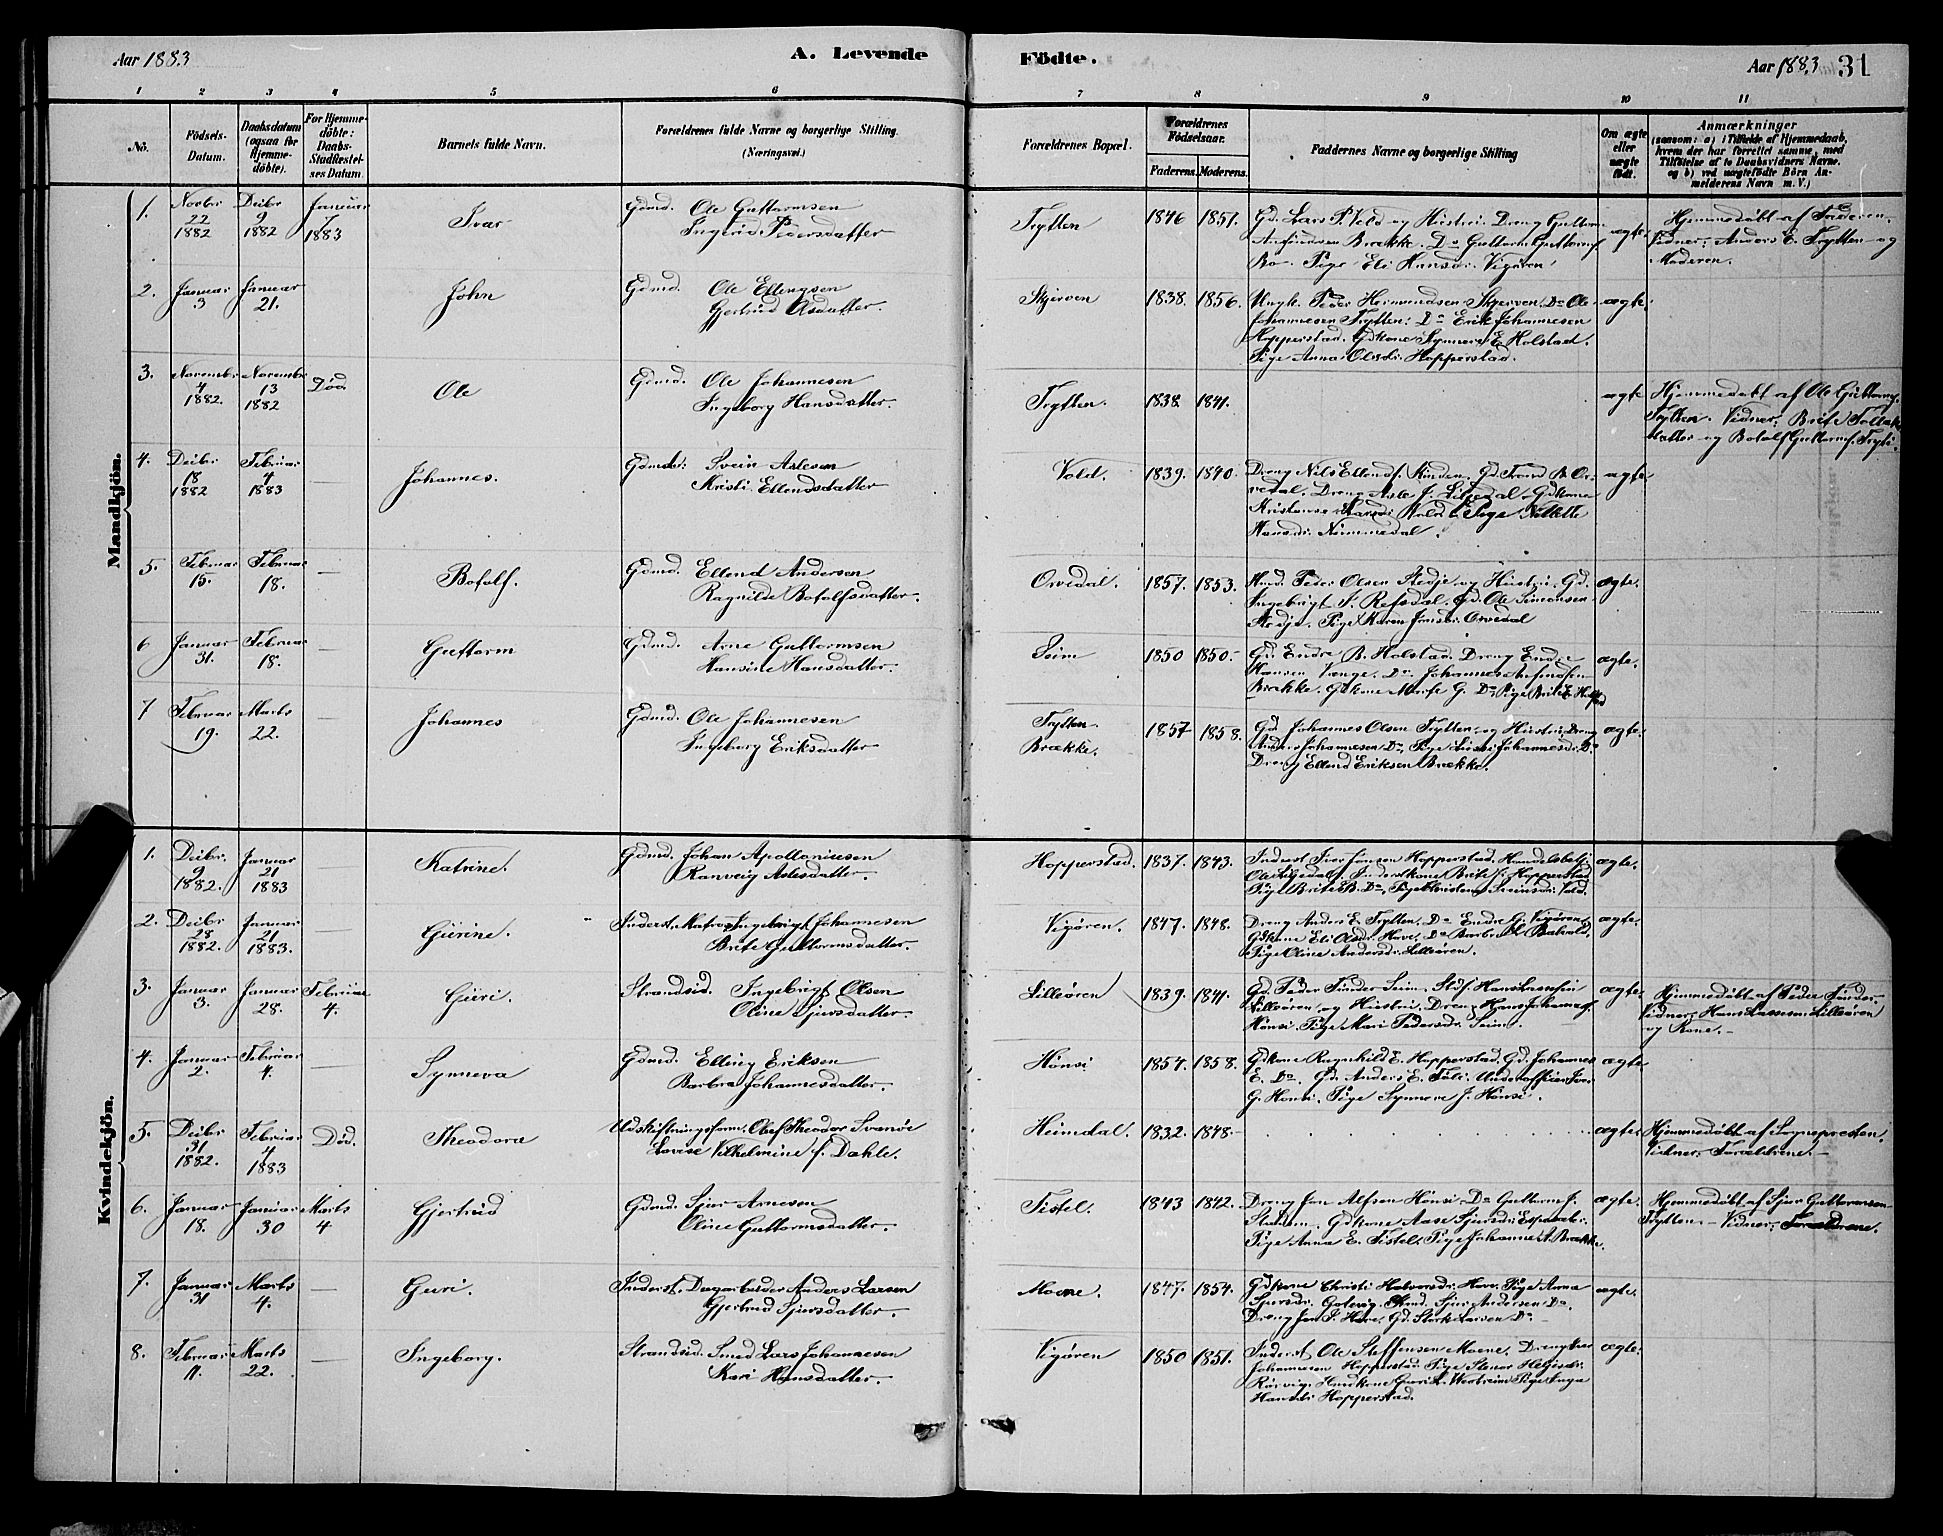 Aar 1883 A. Levende Födte. Aar 1883 31
1 2 3 4 5 6 7 8 9 10 11
No. Födsels-Datum. Daabsdatum (ogsaa for Hjemme-döbte). For Hjemme-döbte: Daabs-Stadfæstel-ses Datum. Barnets fulde Navn. Forældrenes fulde Navne og borgerlige Stilling. (Næringsvei.) Forældrenes Bopæl. Forældrenes Födselsaar. Faderens. Moderens. Faddernes Navne og borgerlige Stilling Om ægte eller uægte födt. Anmærkninger (saasom: a) i Tilfælde af Hjemmedaab, hvem der har forrettet samme, med Tilföielse af to Daabsvidners Navne. og b) ved uægtefödte Börn An-melderens Navn m. V.)
Mandkjön.
1. Novbr 22 1882 Decbr 9 1882 Januar 7 1883 Ivar Gdmd. Ole Guttormsen
Ingerid Pedersdatter Trytten 1846 1851. Gd. Lars P. Vold og Hustru. Dreng Guttorm
Anfindsen Brække. Do Guttorm Guttormsf
Bo. Pige Eli Hansdr. Vigören ægte. Hjemmedöbt af Faderen.
Vidner: Anders E. Trytten og
Moderen.
2. Januar 3 Januar 21. John Gdmd. Ole Ellengsen
Gjertrud Olsdatter. Skjerven 1838. 1856. Ungk. Peder Hermundsen Skjerven. Do Ole
Johannesen Trytten. Do Erik Johannesen
Hopperstad. Gdkone Synneve E. Holstad.
Pige Anna Olsdr. Hopperstad. ægte
3. Novembr 4 1882. Novembr 13 1882 Död Ole Gdmd. Ole Johannesen
Ingeborg Hansdatter. Trytten. 1838 1841. ægte Hjemmedöbt af Ole Guttormsf.
Trytten. Vidner: Brite Follak
datter og Botolf Guttormsf. Trytt.
4. Decbr 18 1882 Februar 4 1883 — Johannes. Gdmd. Svein Aslesen
Kristi Ellendsdatter Vold. 1839. 1840. Dreng Nils Ellendsf. Gd. Trond B. Or-
vedal. Dreng Asle J. Liljedal. Gdkone
Pige
Hansdr. Nummedal. ægte
5. Februar 15. Februar 18. — Botolf. Gdmd. Ellend Andersen
Ragnilde Botolfsdatter. Orvedal. 1857. 1853. Hmd. Peder Olsen Stedje og Hustru. Gd.
Ingebrigt J. Refsdal. Gd. Ole Simonsen
Stedje. Pige Karen Jonsdr. Orvedal ægte.
6 Januar 31. Februar 18. — Guttorm Gdmd. Arne Guttormsen
Hansine Hansdatter. Seim 1850 1850. Gd. Endre B. Holstad. Dreng Endre
Hansen Vange. Do Johannes Anfindsen
Brække. Gdkone Marte G. Do Pige Brite E. ægte.
7 Februar 19. Marts 22. — Johannes Gdmd. Ole Johannesen
Ingeborg Eriksdatter Trytten
Brække. 1857 1858. Gd. Johannes Olsen Trytten og Hustru, Dreng
Anders Johannesen Do, Pige Johannesdr. Do
Dreng Ellend Eriksen Brække. ægte.
Kvindekjön.
1. Decbr. 9 1882. Januar 21 1883 — Katrine. Gdmd. Johan Apolloniusen
Ranveig Aslesdatter. Hopperstad. 1837. 1843. Inderst Iver Jonsen Hopperstad. Handelsbetj.
Ole Liljedal. Inderstkone Brite J. Hopperstad
Pige Brite E B. Do, Pige Sveinsdr. Vold. ægte.
2. Decbr 28 1882. Januar 21 1883. — Gurine. Inderst. Matros Ingebrigt Johannesen
Brite Guttormsdatter. Vigören. 1847. 1848. Dreng Anders E. Trytten. Do Endre G. Vigören.
Gdkone Eli Olsdr. Hove. Do Barbro
Pige Oline Andersdr. Lilleören. ægte.
3. Januar 3. Januar 28. Februar 4. Guri. Strandsid. Ingebrigt Olsen
Oline Sjursdatter. Lilleören 1839. 1841. Gd. Peder Finder Seim. Stdf Hans Lassesen
Lilleören, og Hustru. Dreng Hans Johannesf.
Hönsi. Pige Mari Pedersdr. Seim. ægte. Hjemmedöbt af Peder Finder.
Vidner: Hans Lassesen Lilleören
og Kone.
4. Januar 2. Februar 4. — Synneva Gdmd. Elling Eriksen
Barbra Johannesdatter. Hönsi 1854. 1858. Gdkone Ragnhild E. Hopperstad. Gd. Johannes
E. Do. Gd. Anders E. Föli. Underofficer Iver
G. Hönsi. Pige Synneve J. Hönsi. ægte
5. Decbr 31 1882. Februar 4 1883 Död. Theodora Udskiftningsform. Olaf Theodor Svanöe
Lovise Vilhelmine f. Dahle. Heimdal. 1832. 1848. ægte. Hjemmedöbt af Sognepresten.
Vidner: Forældrene.
6. Januar 18. Januar 30 Marts 4 Gjertrud Gdmd. Sjur Arnesen
Oline Guttormsdatter. Tistel. 1843 1842. Dreng Jon Alfsen Hönsi. Do Guttorm J.
Gdkone Aase Sjursdr.
Pige Anna E. Tistel. Pige Johanne A. Brække. ægte. Hjemmedöbt af Sjur Guttormsen
Trytten. Vidner: Forældrene.
7. Januar 31 Marts 4. — Guri. Inderst. Dagarbeider Anders Larsen
Gjertrud Sjursdatter. Moene. 1847. 1854. Gdkone Christi Halvorsdr. Hove. Pige Anna
Sjursdr. Sjur Andersen Do.
Dreng Jon S. Hove. Gd. Larsen Do ægte.
8. Februar 11. Marts 22. — Ingeborg. Strandsid. Smed Lars Johannesen
Kari Hansdatter. Vigören 1850 1851. Inderst, Ole Steffensen Moene, Dreng Iver
Johannesen Hopperstad. Pige
Rörvig. Pige Inga
Hansdr. Hopperstad. ægte.